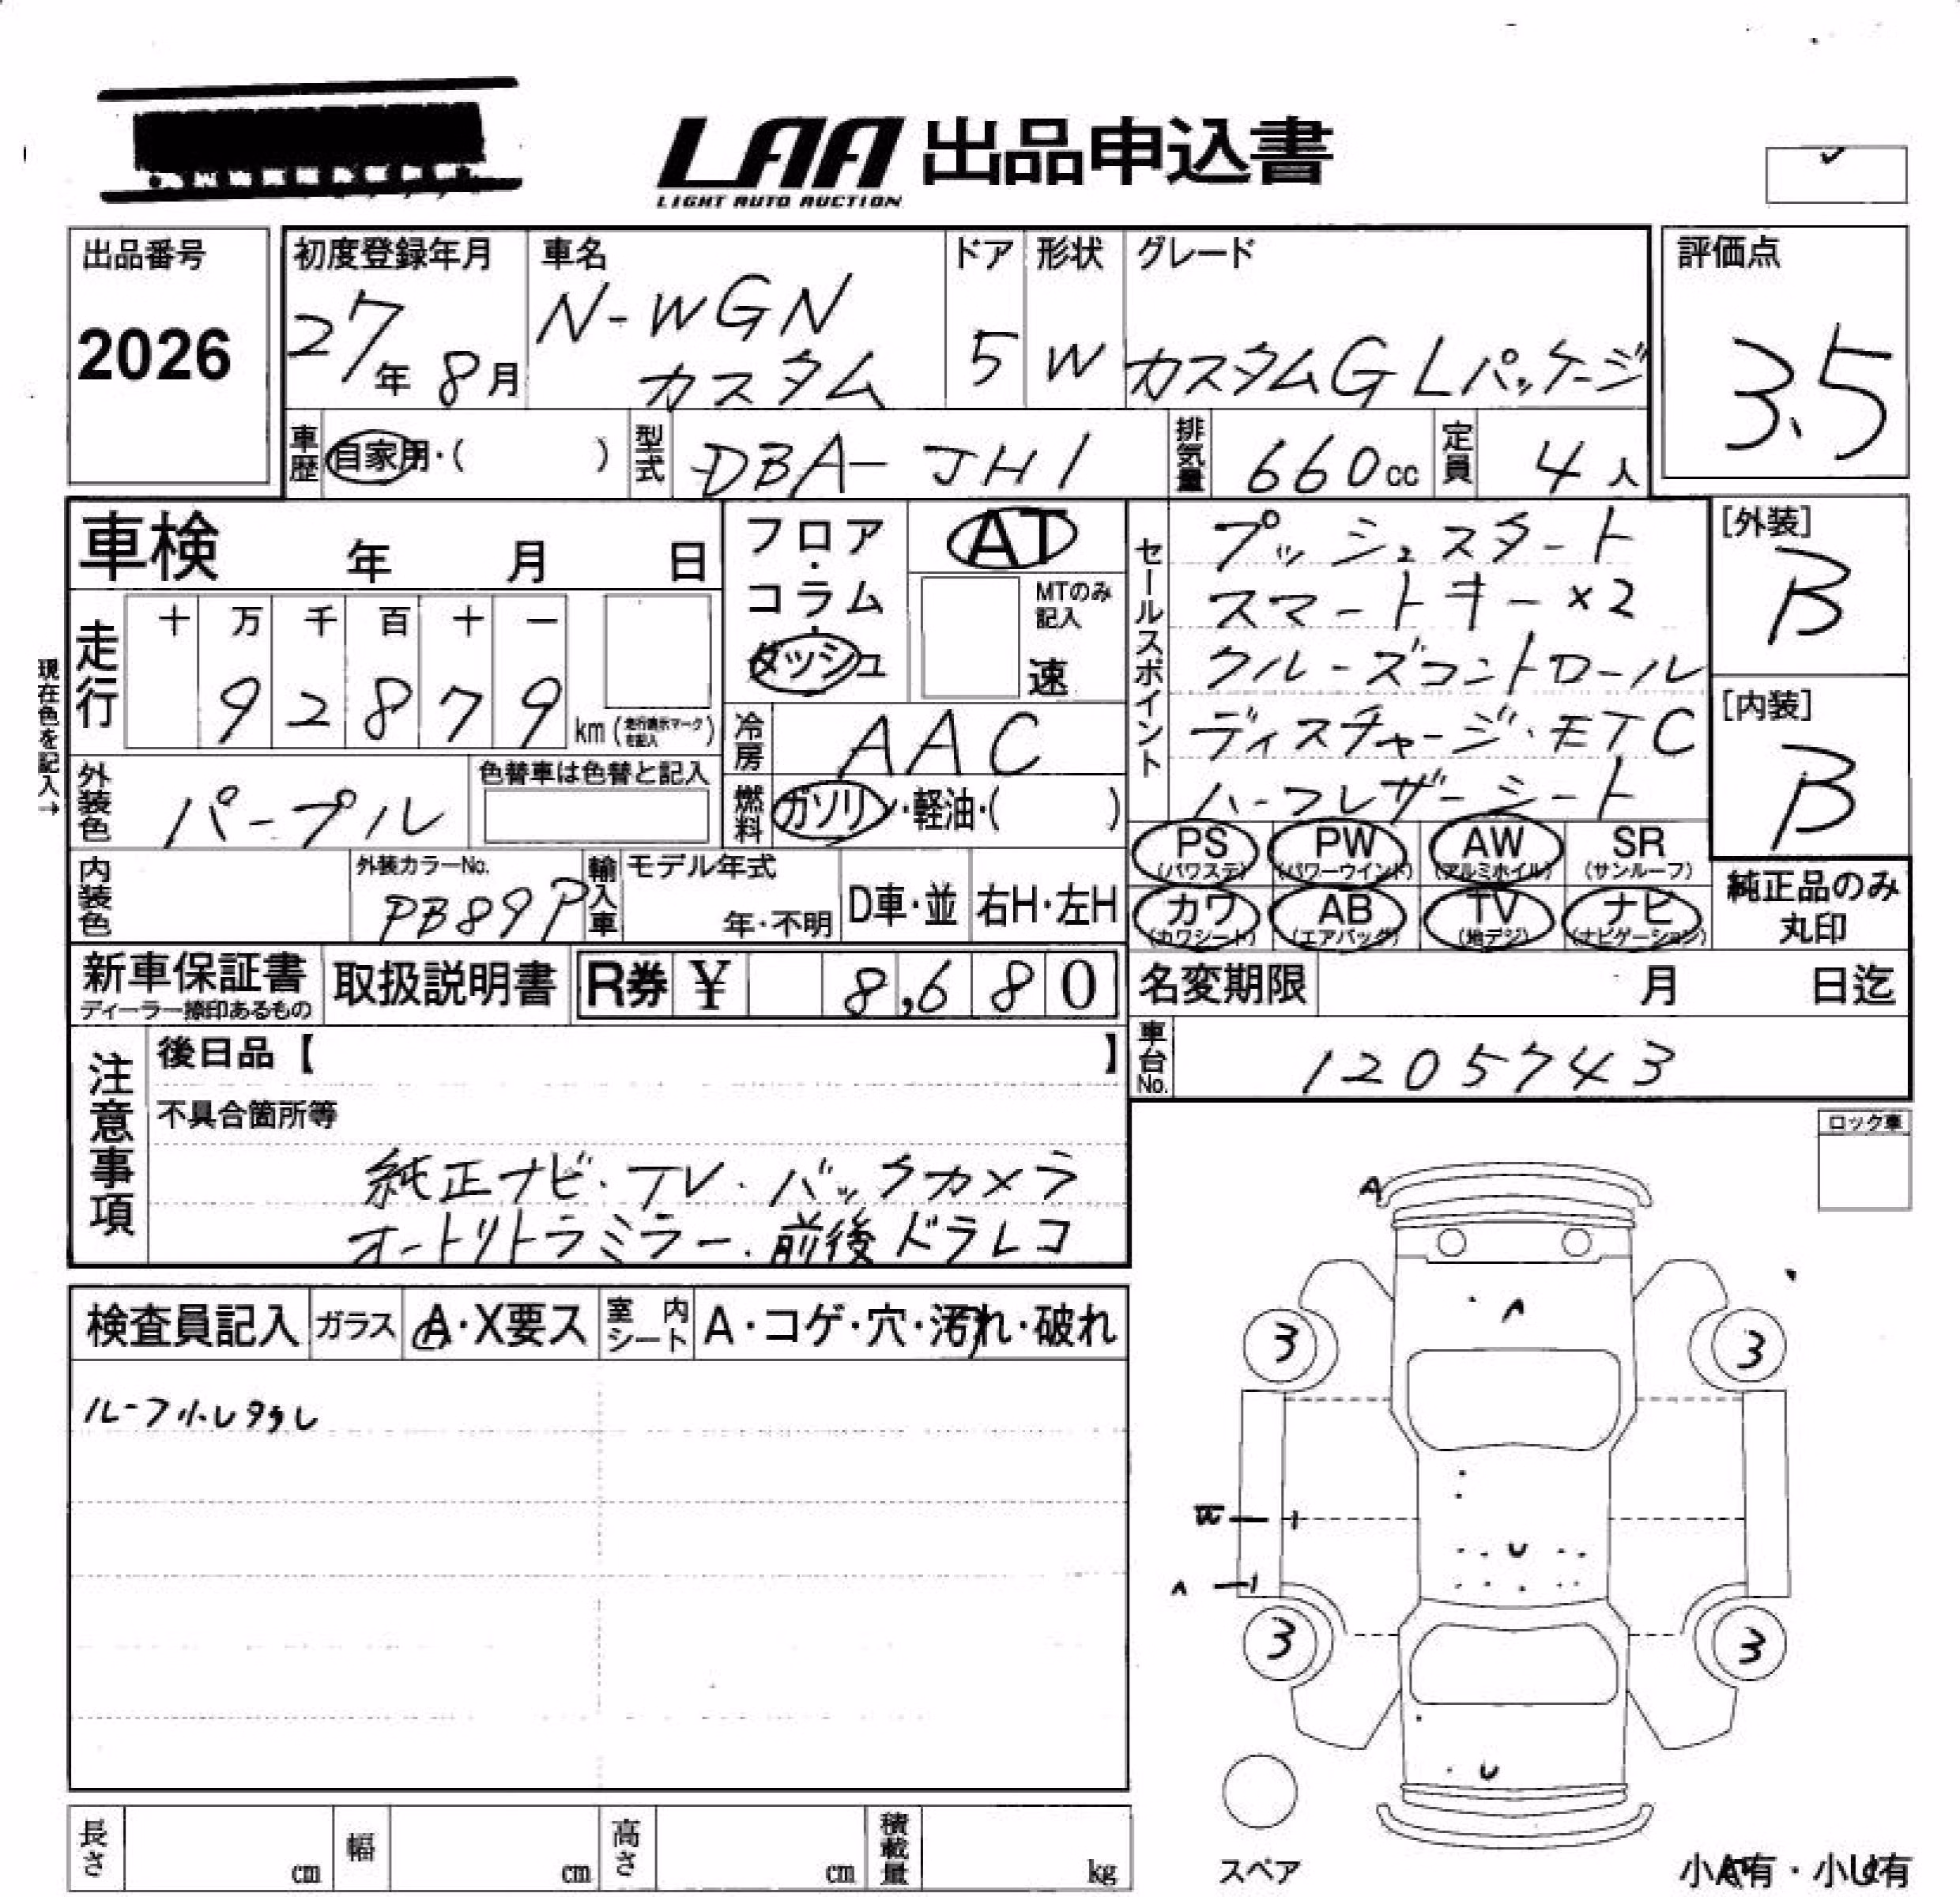 LAA 出品申込書
LIGHT AUTO AUCTION
出品番号
2026
初度登録年月
27年 8月
車名
N-WGN
カスタム
ドア
5
形状
W
グレード
カスタムG Lパッケージ
評価点
3.5
車歴
自家用・( )
型式
DBA-JH1
排気量
660cc
定員
4人
車検 年 月 日
フロア・
コラム・
ダッシュ
AT
MTのみ
記入
速
セールスポイント
プッシュスタート
スマートキー×2
クルーズコントロール
ディスチャージ・ETC
ハーフレザーシート
[外装]
B
[内装]
B
現在色を記入→
走行
十 万 千 百 十 一
9 2 8 7 9
km (走行表示マーク
を記入)
冷房
AAC
外装色
パープル
色替車は色替と記入
燃料
ガソリン・軽油・( )
PS
(パワステ)
PW
(パワーウインド)
AW
(アルミホイル)
SR
(サンルーフ)
カワ
(カワシート)
AB
(エアバッグ)
TV
(地デジ)
ナビ
(ナビゲーション)
純正品のみ
丸印
内装色
外装カラーNo.
PB89P
輸入車
モデル年式
年・不明
D車・並
右H・左H
新車保証書
ディーラー捺印あるもの
取扱説明書
R券 ¥ 8,680
名変期限 月 日迄
車台No.
1205743
注意事項
後日品【 】
不具合箇所等
純正ナビ・TV・バックカメラ
オートリトラミラー・前後ドラレコ
ロック車
検査員記入
ガラス
A・X要ス
室内
シート
A・コゲ・穴・汚れ・破れ
A
3
3
3
3
A
U
U
スペア
小A有・小U有
長さ cm
幅 cm
高さ cm
積載量 kg